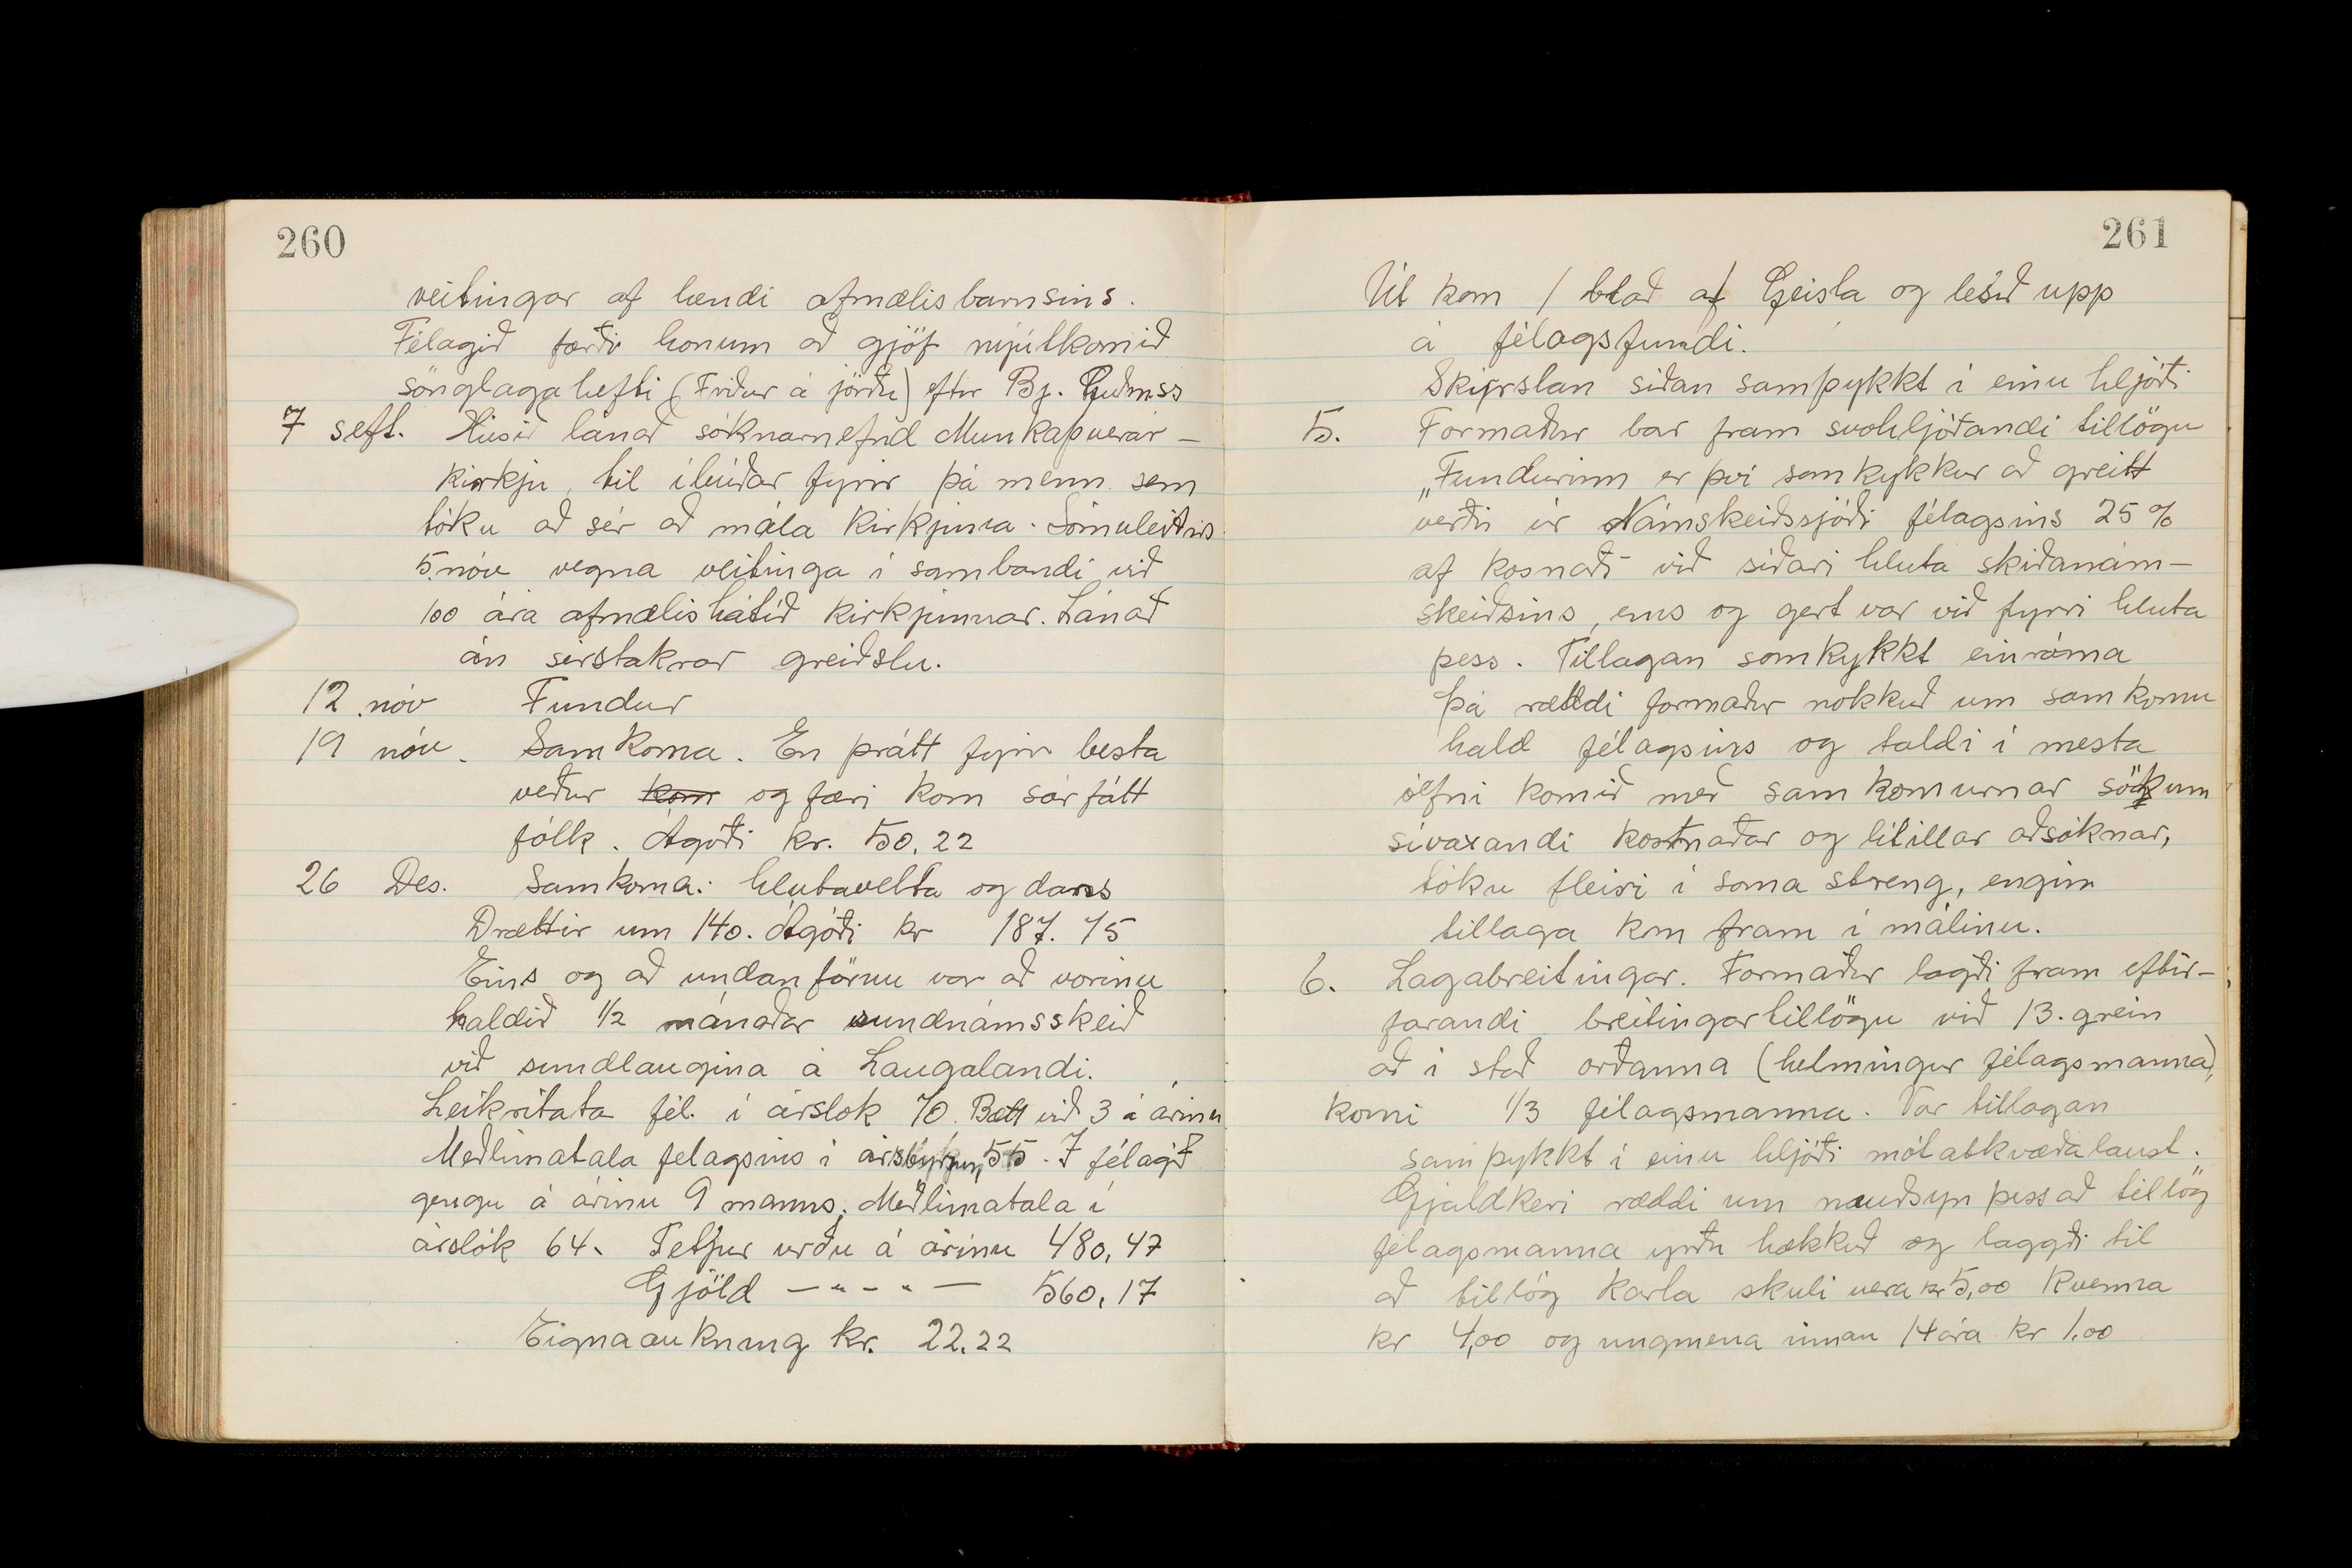 260
veitingar af hendi afmælisbarnsins.
Félagið færði honum að gjöf nýútkomið
sönglagahefti (Friður á jörðu) eftir Bj. Guðmss
7 seft. Húsið lánað sóknarnefnd Munkaþverár-
kirkju til íbúðar fyrir þá menn sem
tóku að sér að mála kirkjuna. Sömuleiðis
5. nóv vegna veitinga í sambandi við
100 ára afmælishátíð kirkjunnar. Lánað
án sérstakrar greiðslu.
12. nóv Fundur
19 nóv. Samkoma. En þrátt fyrir besta
veður kom og færi kom sárfátt
fólk. Ágóði kr. 50,22
26 Des. Samkoma: hlutavelta og dans
Drættir um 140. Ágóði kr 187.75
Eins og að undanförnu var að vorinu
haldið 1/2 mánaðar sundnámsskeið
við sundlaugina á Laugalandi.
Leikritata fél. í árslok 70. Bætt við 3 á árinu
Meðlimatala félagsins í ársbyrjun 55. Í félagið
gengu á árinu 9 manns. Meðlimatala í
árslok 64. Tekjur urðu á árinu 480,47
Gjöld — " - " — 560,17
Eignaaukning kr. 22.22
261
Út kom 1 blað af Geisla og lesið upp
á félagsfundi.
Skýrslan síðan samþykkt í einu hljóði
5. Formaður bar fram svohljóðandi tillögu
„Fundurinn er því samþykkur að greitt
verði úr Námskeiðssjóði félagsins 25%
af kosnaði við síðari hluta skíðanám-
skeiðsins, eins og gert var við fyrri hluta
þess. Tillagan samþykkt einróma
Þá ræddi formaður nokkuð um samkomu
hald félagsins og taldi í mesta
óefni komið með samkomurnar sökum
sívaxandi kostnaðar og lítillar aðsóknar,
tóku fleiri í sama streng, engin
tillaga kom fram í málinu.
6. Lagabreitingar. Formaður lagði fram eftir-
farandi breitingartillögu við 13. grein
að í stað orðanna (helmingur félagsmanna),
komi 1/3 félagsmanna. Var tillagan
samþykkt í einu hljóði mótatkvæðalaust.
Gjaldkeri ræddi um nauðsyn þess að tillög
félagsmanna yrðu hækkuð og laggði til
að tillög karla skuli vera kr 5,00 kvenna
kr 4,00 og ungmena innan 14 ára kr 1.00